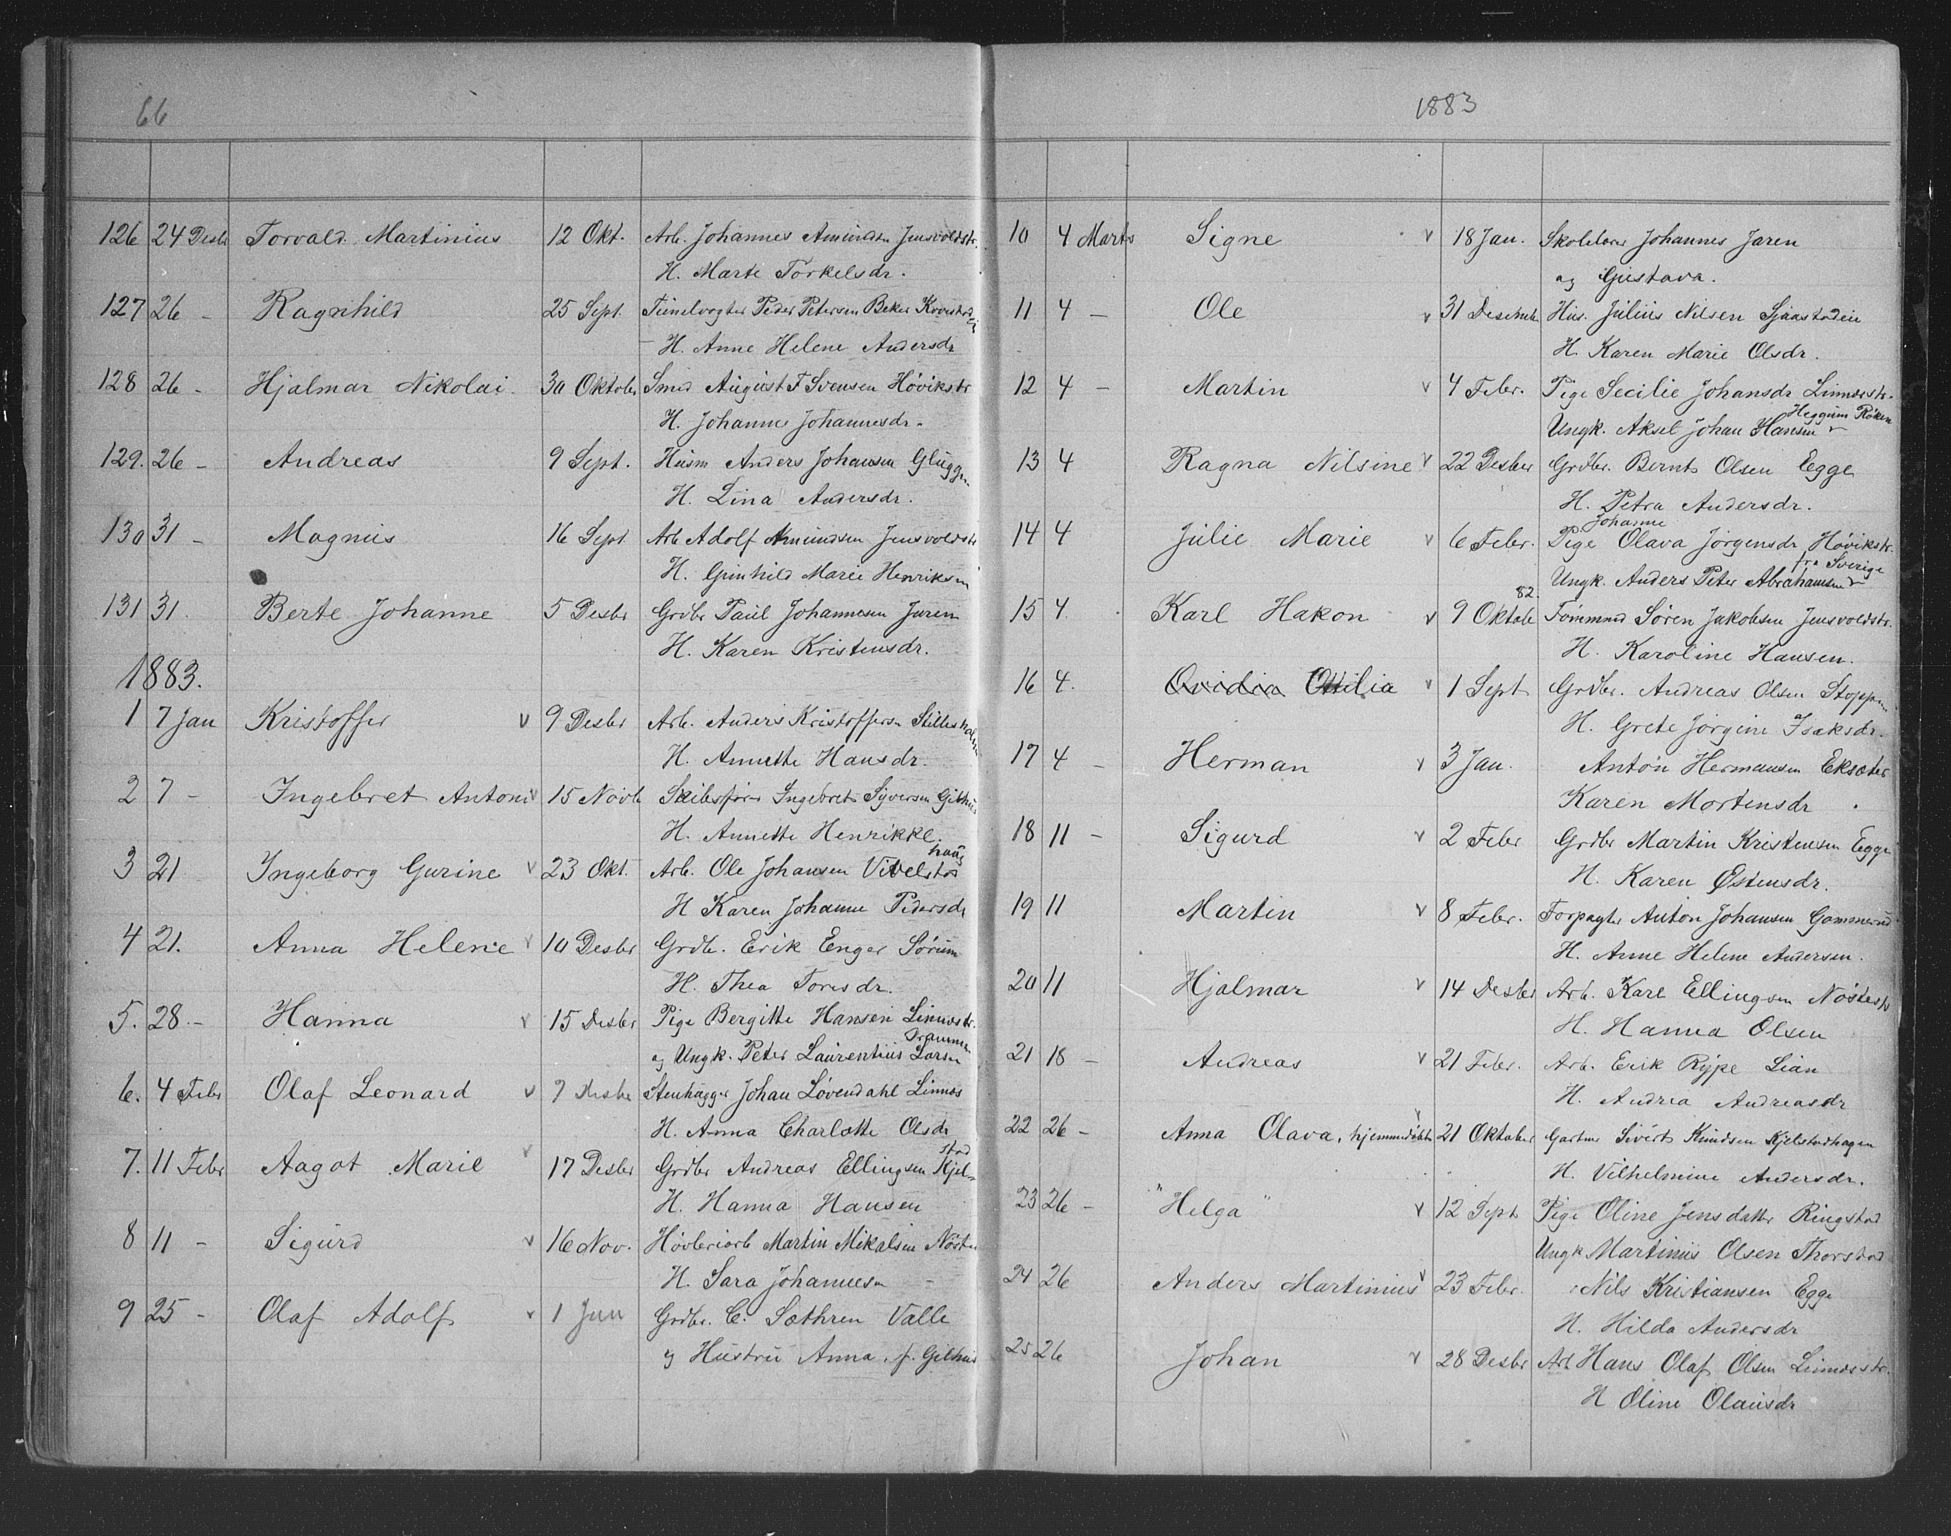 66
126 24 Desbr Torvald Martinius 12 Okt. Arb. Johannes Amundsen Jensvoldstr.
H. Marte Torkelsdr.
127 26 - Ragnhild 25 Sept. Peder Petersen
H. Anne Helene Andersdr
128 26 - Hjalmar Nikolai 30 Oktober Smed August F Svensen Høvikstr
H. Johanne Johannesdr.
129. 26 - Andreas 9 Sept. Husm Anders Johansen Gluggen
H. Lina Andersdr.
130 31 - Magnus 16 Sept Arb Adolf Amundsen Jensvoldstr
H. Gunhild Marie Henriksen
131 31. Berte Johanne 5 Desbr Grdbr Paul Johannesen Juren
H. Karen Kristensdr.
1883.
1 7 Jan Kristoffer v 9 Desbr Arb. Anders Kristoffersn
H. Annette Hansdr.
2 7 - Ingebret Antoni v 15 Novb Skibsfører Ingebret Syversen Gilhus
H. Annette Henrikke.
3 21 Ingeborg Gurine v 23 Okt. Arb. Ole Johansen
H Karen Johanne Pedersdr
4 21. Anna Helene v 10 Desbr Grdb. Erik Enger Sørum
H. Thea Toresdr.
5. 28. - Hanna v 15 Desbr Pige Bergitte Hansen Linnesstr.
og Ungk. Peter Laurentius Larsen Drammen
6. 4 Febr Olaf Leonard v 7 Desbr Stenhugger Johan Løvendahl Linnes
H. Anna Charlotte Olsdr
7. 11 Febr Aagot Marie v 17 Desbr Grdbr Andreas Ellingsen Kjelstad
H. Hanna Hansen
8 11 - Sigurd v 16 Nov. Høvleriarb Martin Mikalsen Nøste
H. Sara Johannesn
9 25 - Olaf Adolf v 1 Jun Grdbr. C. Sæthren Valle
og Hustru Anna, f. Gilhus
1883
10 4 Marts Signe v 18 Jan. Skolelærer Johannes Jaren
og Gustava.
11 4 - Ole v 31 Desember Hus. Julius Nilsen Sjaastadeie
H. Karen Marie Olsdr.
12 4 - Martin v 4 Febr. Pige Secilie Johansdr Linnesstr.
Ungk. Aksel Johan Hansen Heggum Røken
13 4 Ragna Nilsine v 22 Desber Grdbr. Bernt Olsen Egge
H. Petra Andersdr.
14 4 Julie Marie v 6 Febr. Pige Johanne Olava Jørgensdr Høvikstr.
Ungk. Anders Peter Abrahamsen fra Sverige
15 4. Karl Hakon v 9 Oktobr 82. Formand Søren Jakobsen Jensvoldstr.
H. Karoline Hansen.
16 4. Ovidia Ottilia v 1 Sept Grdbr. Andreas Olsen Stoppen
H. Grete Jørgine Isaksdr.
17 4 - Herman v 3 Jan. Anton Hermansen Eksæter
Karen Mortensdr
18 11 - Sigurd v 2 Febr Grdbr Martin Kristensen Egge
H. Karen Østensdr.
19 11 Martin v 8 Febr. Forpagter Anton Johansen Gommerud
H. Anne Helene Andersen.
20 11 Hjalmar v 14 Desber Arb. Karl Ellingsen Nøstestr
H. Hanna Olsen
21 18 - Andreas v 21 Febr. Arb. Erik Rype Lian
H. Andrea Andreasdr
22 26 - Anna Olava, hjemmedøbt v 21 Oktober Gartner Sivert Knudsen Kjelstadhagen
H. Vilhelmine Andersdr.
23 26 - "Helga" v 12 Sept Pige Oline Jensdatter Ringstad
Ungk Martinius Olsen Thorstad
24 26 Anders Martinius v 23 Febr. Nils Kristiansen Egge
H. Hilda Andersdr
25 26 Johan v 28 Desbr Arb Hans Olaf Olsen Linnesstr.
H Oline Olausdr